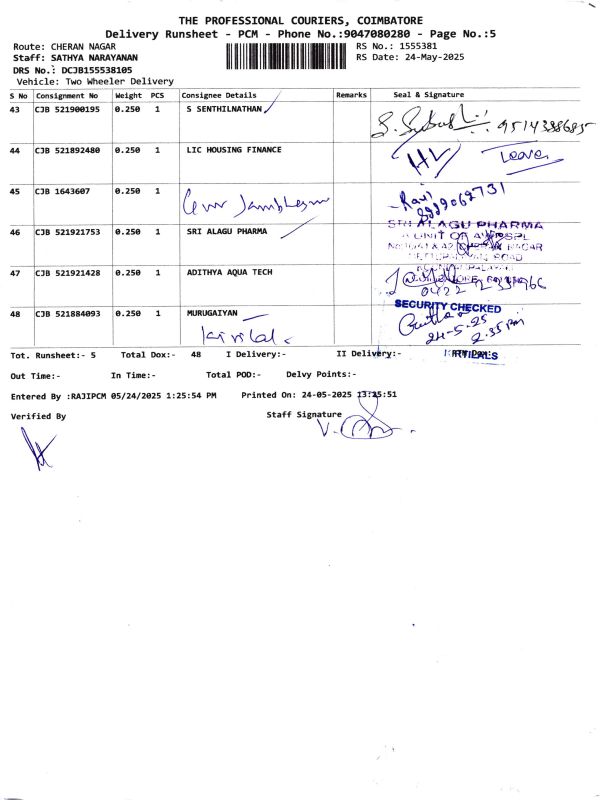 THE PROFESSIONAL COURIERS, COIMBATORE
Delivery Runsheet - PCM - Phone No.:9047080280 - Page No.:5
Route: CHERAN NAGAR
RS No.: 1555381
Staff: SATHYA NARAYANAN
RS Date: 24-May-2025
DRS No.: DCJB155538105
Vehicle: Two Wheeler Delivery
S No Consignment No Weight PCS Consignee Details Remarks Seal & Signature
43 CJB 521900195 0.250 1 S SENTHILNATHAN
9514388685
44 CJB 521892480 0.250 1 LIC HOUSING FINANCE
45 CJB 1643607 0.250 1
Ravi
8889062731
46 CJB 521921753 0.250 1 SRI ALAGU PHARMA
SRI ALAGU PHARMA
A UNIT OF
NAGAR
ROAD
47 CJB 521921428 0.250 1 ADITHYA AQUA TECH
0422
48 CJB 521884093 0.250 1 MURUGAIYAN
SECURITY CHECKED
24-5-25
2.35 PM
Tot. Runsheet:- 5 Total Dox:- 48 I Delivery:- II Delivery:-
Out Time:- In Time:- Total POD:- Delvy Points:-
Entered By :RAJIPCM 05/24/2025 1:25:54 PM Printed On: 24-05-2025 13:25:51
Verified By Staff Signature